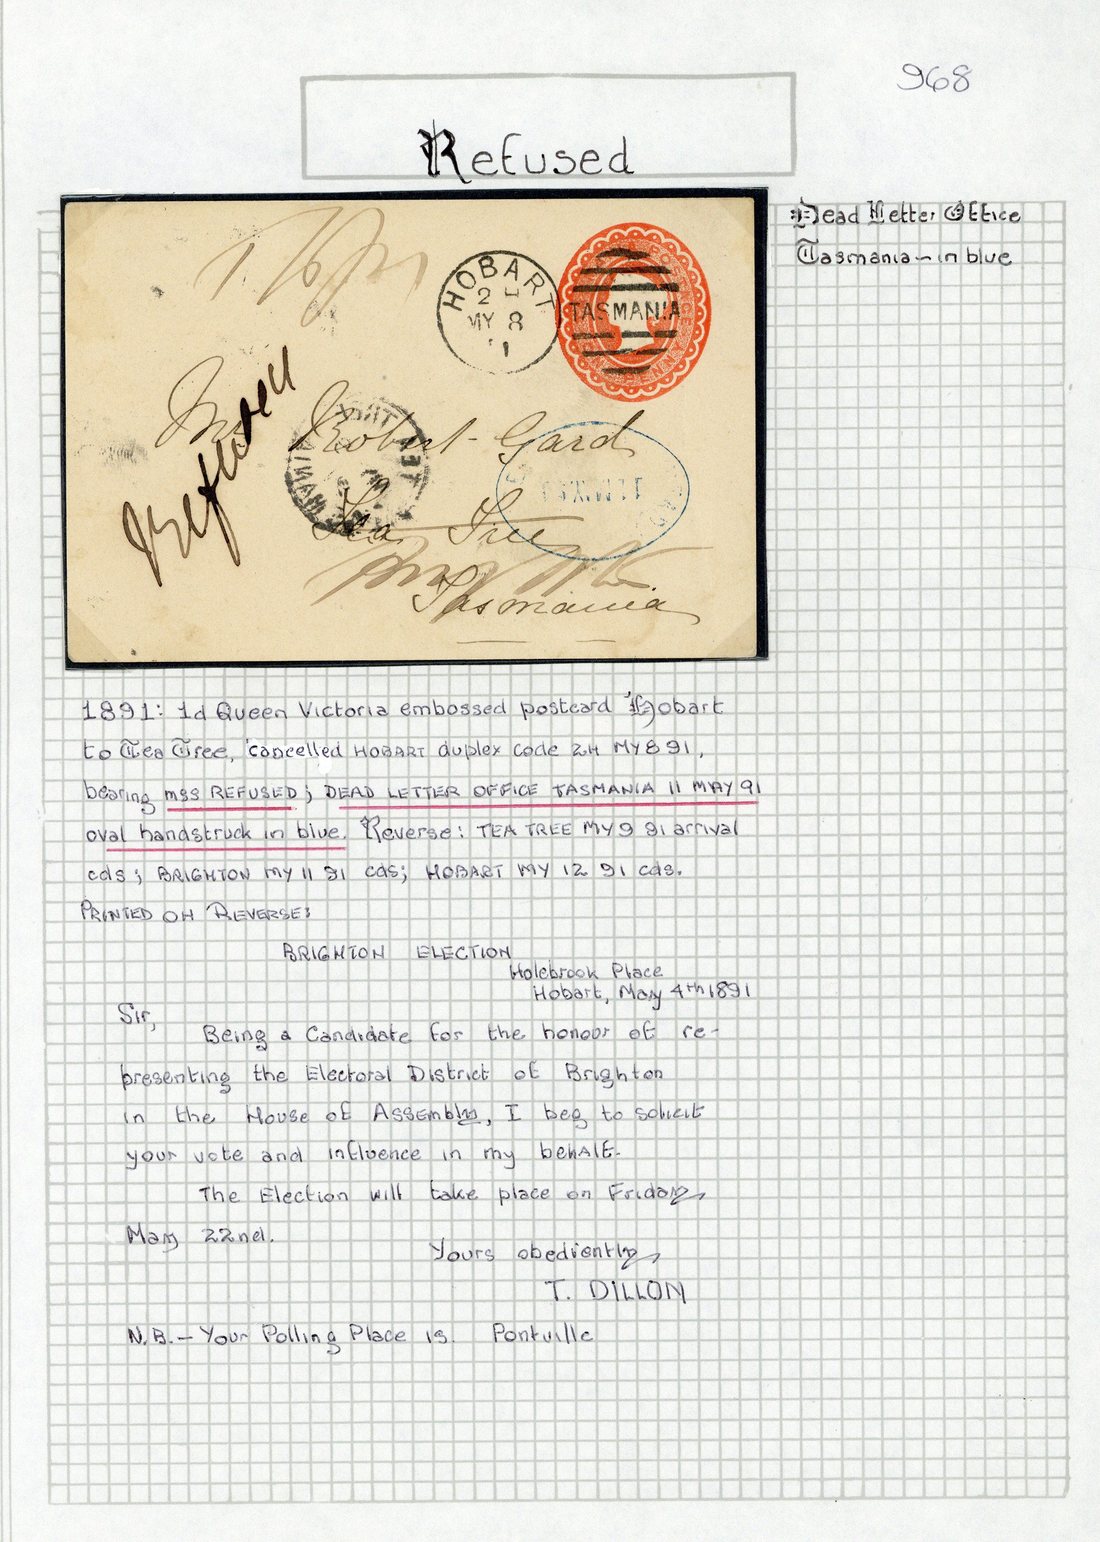 968
Refused
Dead Letter Office
Tasmania - in blue
HOBART
2 H
MY 8
91
TASMANIA
Refused
Mr Robert Gard
Tea Tree
Tasmania
1891: 1d Queen Victoria embossed postcard Hobart
to Tea Tree, cancelled HOBART duplex code 2H MY 8 91,
bearing mss REFUSED; DEAD LETTER OFFICE TASMANIA 11 MAY 91
oval handstruck in blue. Reverse: TEA TREE MY 9 91 arrival
cds; BRIGHTON MY 11 91 cds; HOBART MY 12 91 cds.
PRINTED ON REVERSE:
BRIGHTON ELECTION
Holebrook Place
Hobart, May 4th 1891
Sir,
Being a Candidate for the honour of re-
presenting the Electoral District of Brighton
in the House of Assembly, I beg to solicit
your vote and influence in my behalf.
The Election will take place on Friday,
May 22nd.
Yours obediently,
T. DILLON
N.B. - Your Polling Place is Pontville